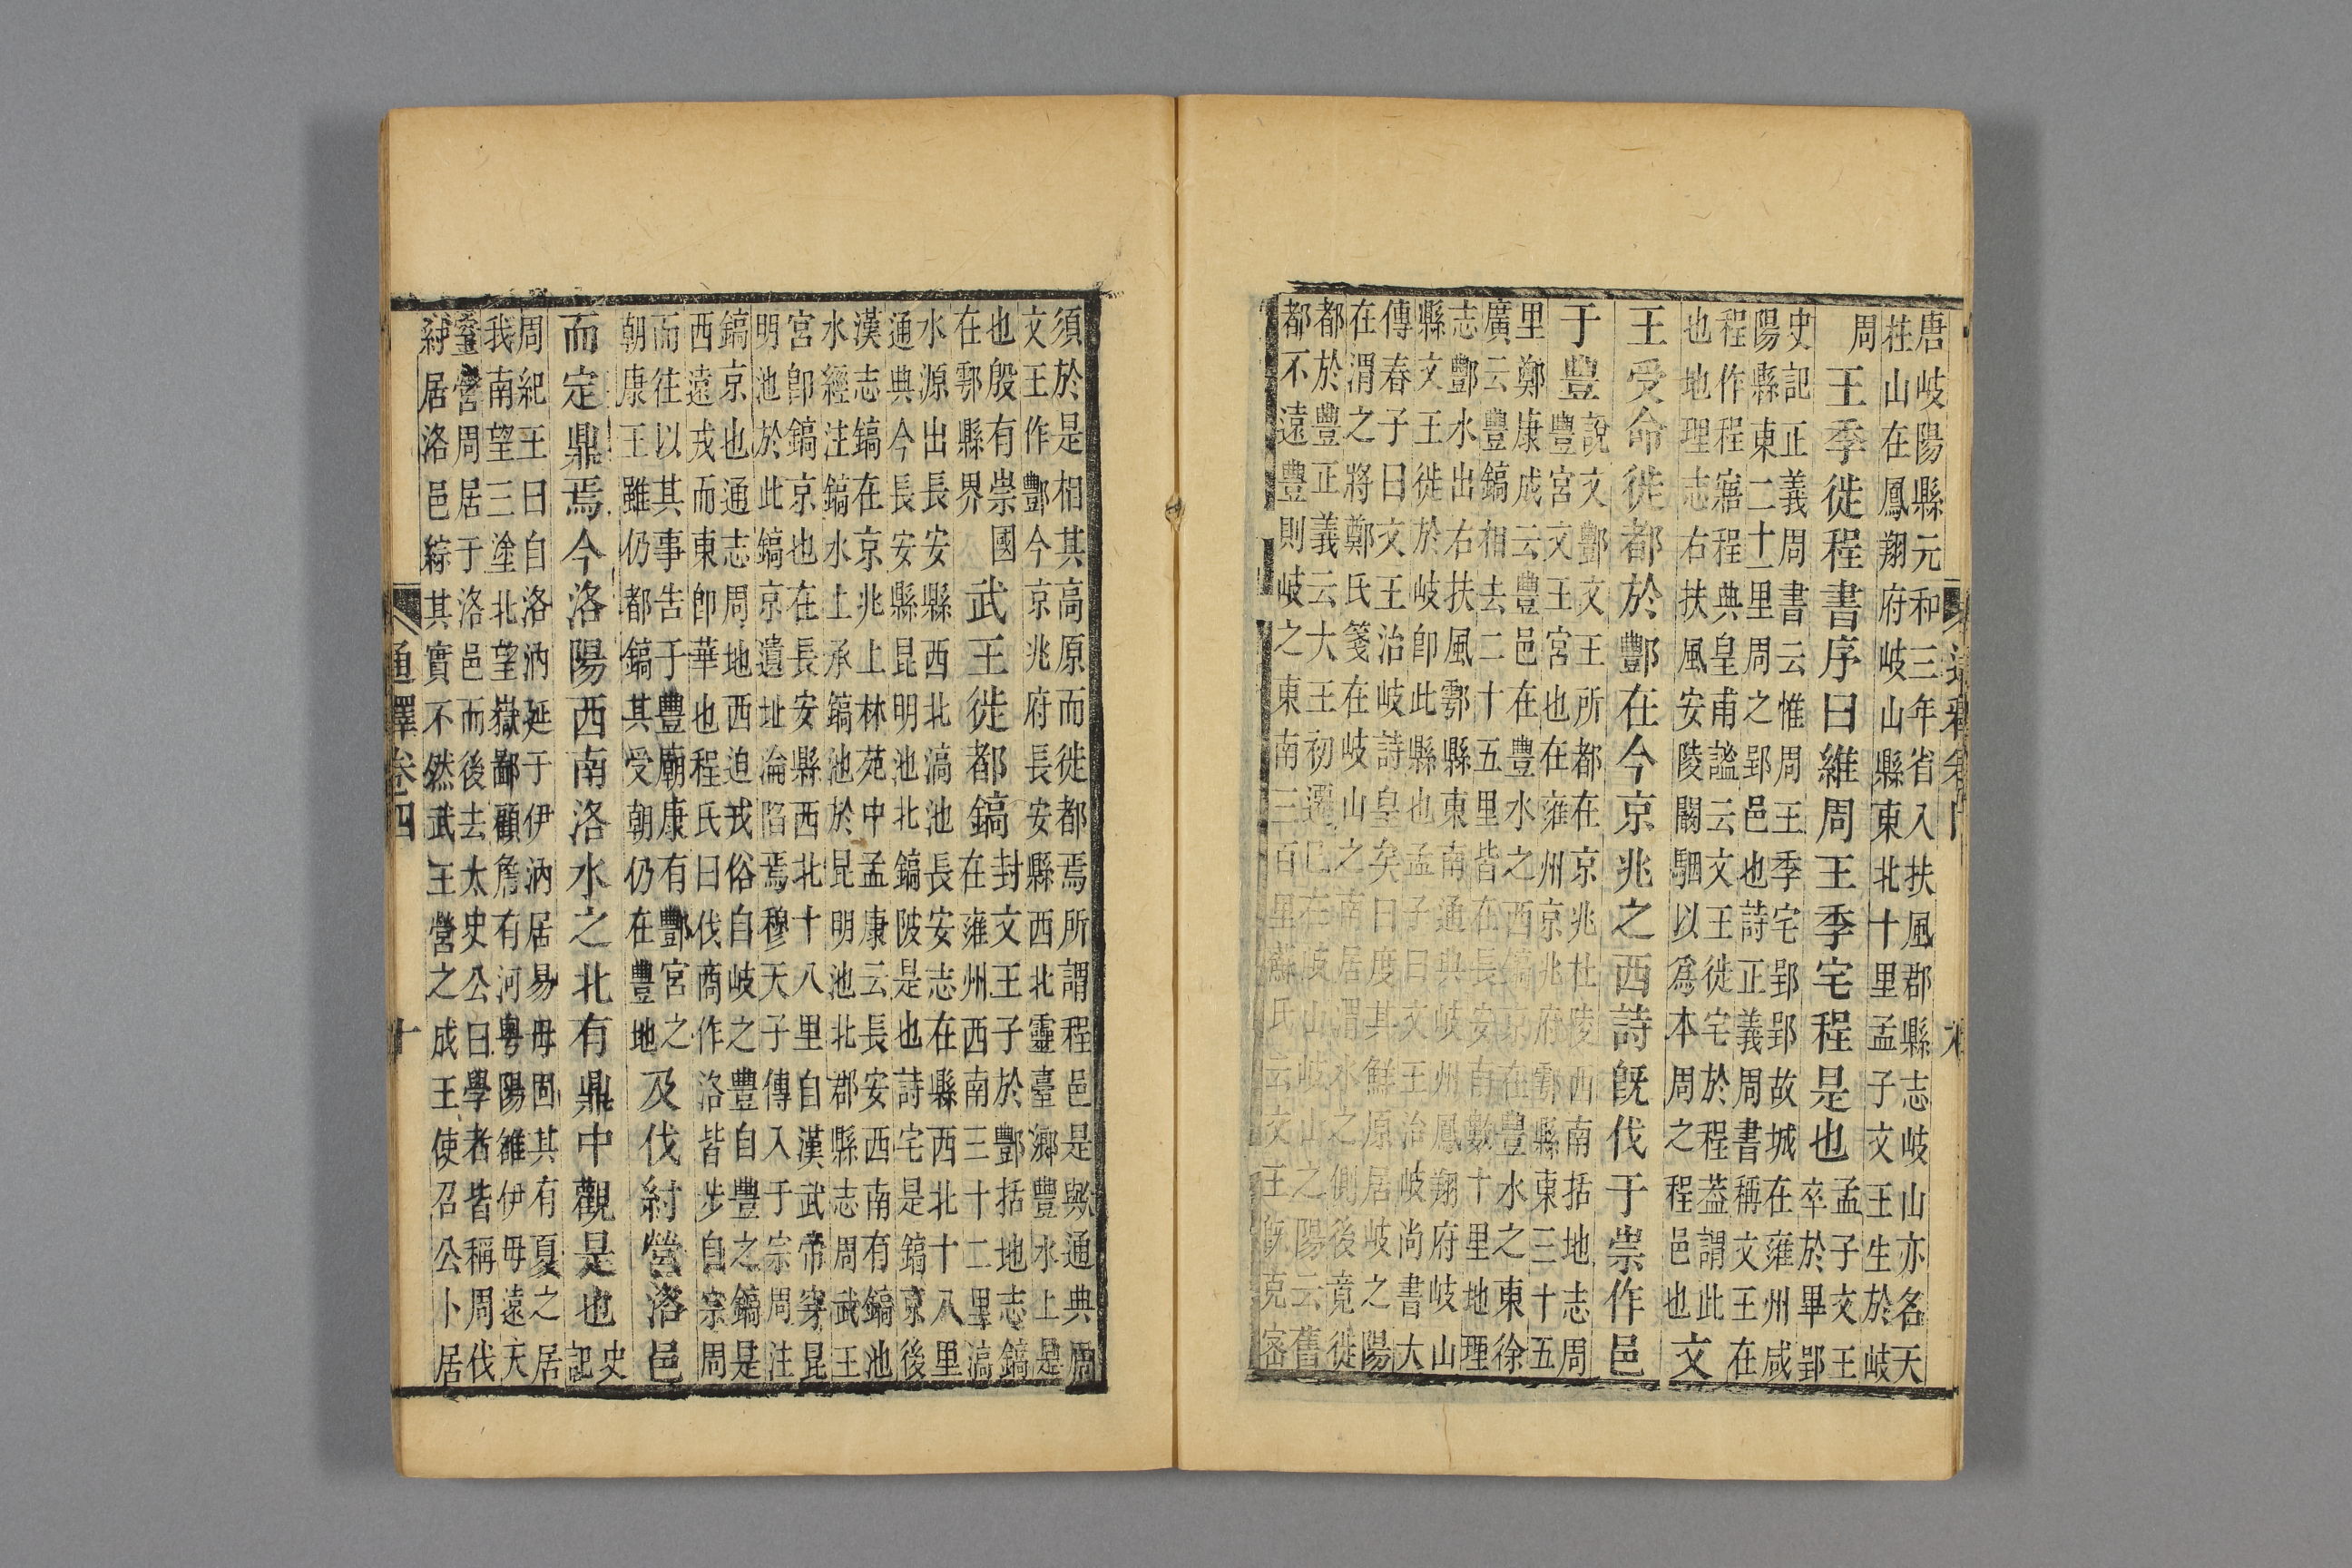 唐岐陽縣元和三年省入扶風郡縣志岐山亦名天
柱山在鳳翔府岐山縣東北十里孟子文王生於岐
周
王季徙程書序曰維周王季宅程是也
孟子文王
卒於畢郢
史記正義周書云惟周王季宅郢郢故城在雍州咸
陽縣東二十一里周之郢邑也詩正義周書稱文王在
程作程寤程典皇甫謐云文王徙宅於程葢謂此
也地理志右扶風安陵闞駰以爲本周之程邑也
文
王受命徙都於酆在今京兆之西詩旣伐于崇作邑
于豐
說文酆文王所都在京兆杜陵西南括地志周
豐宮文王宮也在雍州京兆府鄠縣東三十五
里鄭康成云豐邑在豐水之西鎬京在豐水之東徐
廣云豐鎬相去二十五里皆在長安南數十里地理
志酆水出右扶風鄠縣東南通典岐州鳳翔府岐山
縣文王徙於岐卽此縣也孟子曰文王治岐尚書大
傳春子曰文王治岐詩皇矣曰度其鮮原居岐之陽
在渭之將鄭氏箋在岐山之南居渭水之側後竟徙
都於豐正義云大王初遷已在岐山岐山之陽云舊
都不遠豐則岐之東南三百里蘇氏云文王旣克密
須於是相其高原而徙都焉所謂程邑是與通典周
文王作酆今京兆府長安縣西北靈臺鄉豐水上是
也殷有崇國
在鄠縣界
武王徙都鎬
封文王子於酆括地志鎬
在雍州西南三十二里滈
水源出長安縣西北滈池長安志在縣西北十八里
通典今長安縣昆明池北鎬陂是也詩宅是鎬京後
漢志鎬在京兆上林苑中孟康云長安西南有鎬池
水經注鎬水上承鎬池於昆明池北郡縣志周武王
宮卽鎬京也在長安縣西北十八里自漢武帝穿昆
明池於此鎬京遺址淪陷焉穆天子傳入于宗周注
鎬京也通志周地西迫戎俗自岐之豐自豐之鎬是
西遠戎而東卽華也程氏曰伐商作洛皆步自宗周
而往以其事告于豐廟康有酆宮之
朝康王雖仍都鎬其受朝仍在豐地
及伐紂營洛邑
而定鼎焉今洛陽西南洛水之北有鼎中觀是也
史
記
周紀王曰自洛汭延于伊汭居易毋固其有夏之居
我南望三塗北望嶽鄙顧詹有河粵陽雒伊毋遠天
室營周居于洛邑而後去太史公曰學者皆稱周伐
紂居洛邑綜其實不然武王營之成王使召公卜居
通釋卷四
十